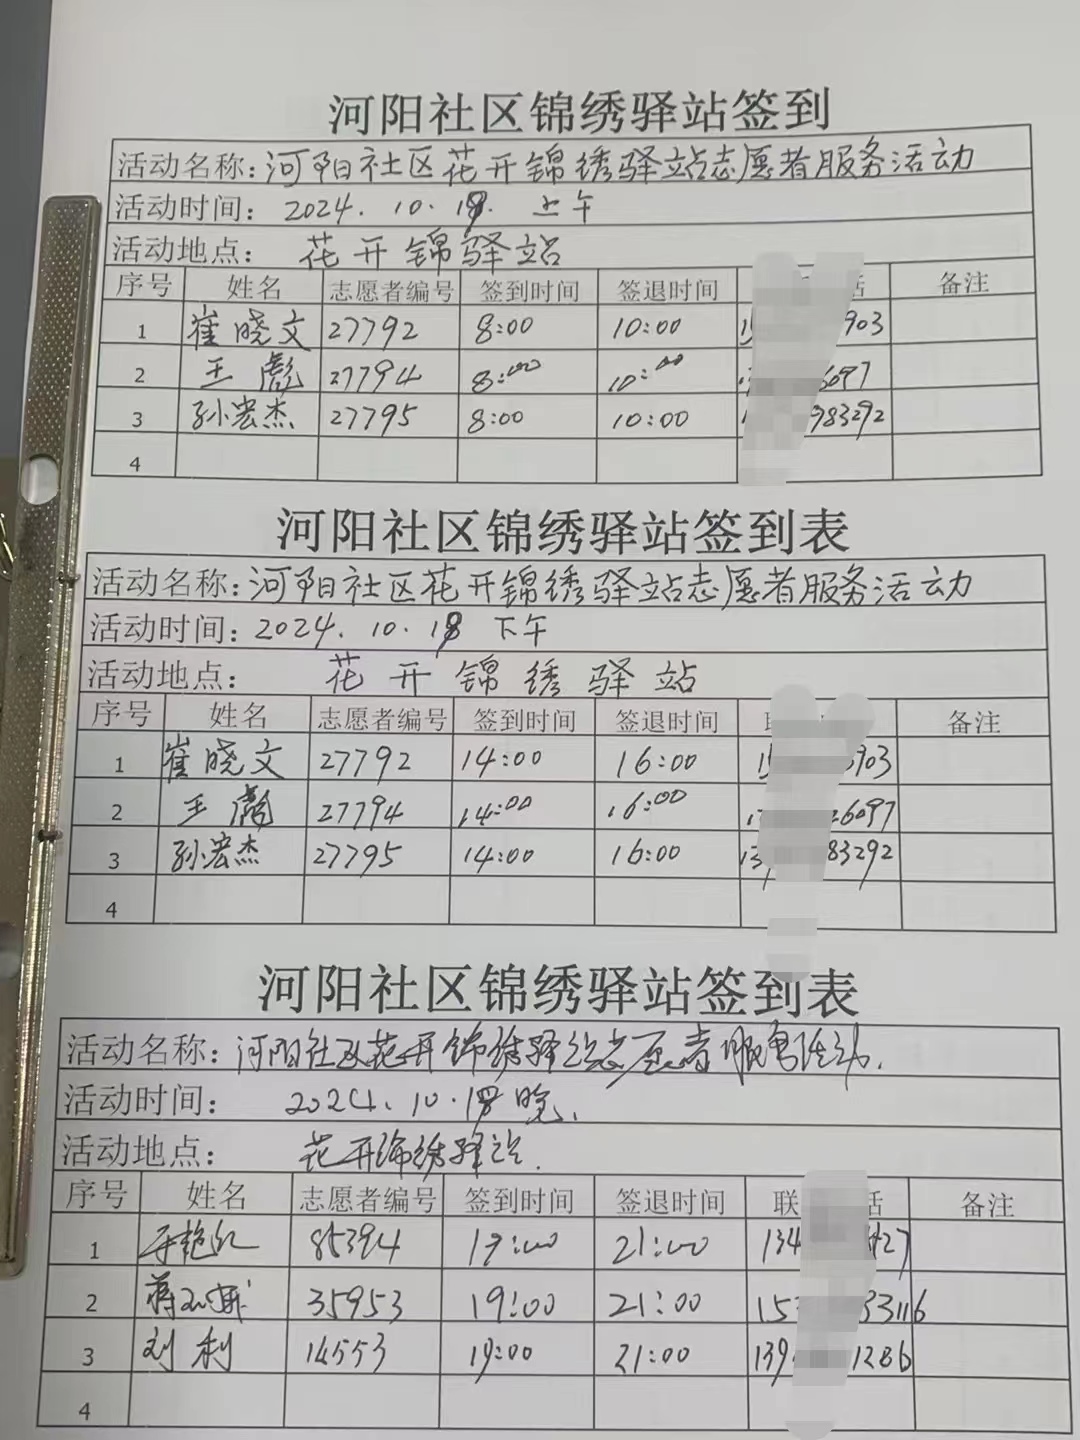 河阳社区锦绣驿站签到
活动名称：河阳社区花开锦绣驿站志愿者服务活动
活动时间： 2024.10.18. 上午
活动地点： 花开锦驿站
序号 姓名 志愿者编号 签到时间 签退时间 话 备注
1 崔晓文 27792 8:00 10:00 903
2 王彪 27794 8:00 10:00 6097
3 孙宏杰 27795 8:00 10:00 983292
4
河阳社区锦绣驿站签到表
活动名称：河阳社区花开锦绣驿站志愿者服务活动
活动时间：2024.10.18 下午
活动地点： 花开锦绣驿站
序号 姓名 志愿者编号 签到时间 签退时间 联 备注
1 崔晓文 27792 14:00 16:00 15 903
2 王彪 27794 14:00 16:00 26097
3 孙宏杰 27795 14:00 16:00 13 83292
4
河阳社区锦绣驿站签到表
活动名称：河阳社区花开锦绣驿站志愿者服务活动.
活动时间： 2024.10.18晚.
活动地点： 花开锦绣驿站.
序号 姓名 志愿者编号 签到时间 签退时间 联 话 备注
1 85394 19:00 21:00 134 427
2 35953 19:00 21:00 15 33116
3 刘利 14553 19:00 21:00 139 1286
4